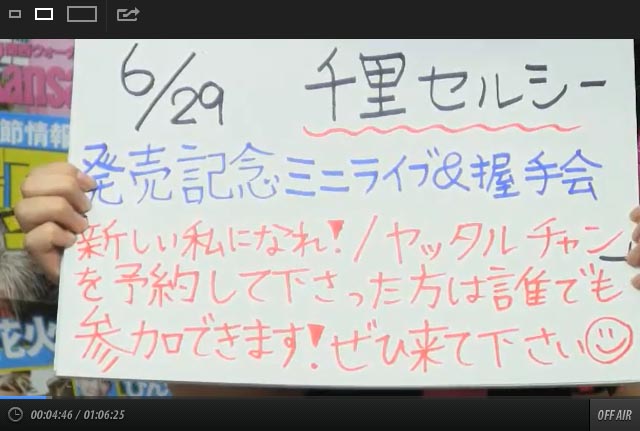 6/29 千里セルシー
発売記念ミニライブ&握手会
新しい私になれ!/ヤッタルチャン
を予約して下さった方は誰でも
参加できます!ぜひ来て下さい
節情報
花火
00:04:46 / 01:06:25
OFF AIR